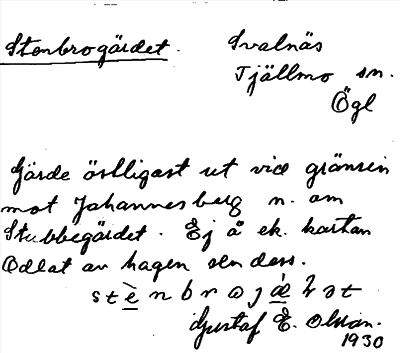 Stenbrogärdet. Svalnäs
Tjällmo sn.
Ögl
Gärde östligast ut vid gränsen
mot Johannesberg n. om
Stubbegärdet. Ej å ek. kartan
Odlat av hagen sen dess.
Gustaf E. Olson.
1930